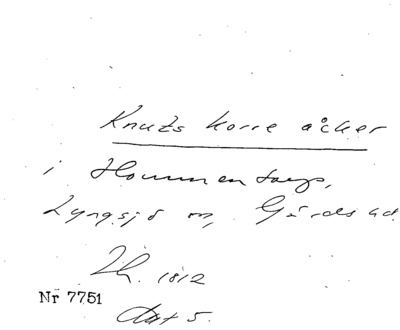 Knuts korre åker
i Hommentorp,
Lyngsjö sn, Gärds hd.
Lh. 1812
Nr 7751
Akt 5.